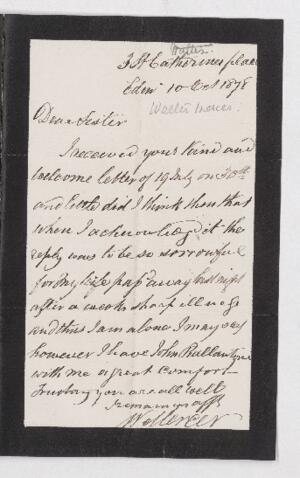 Walter
3 St Catherines place
Edinr 10 Oct 1878
Walter Mercer.
Dear Sister
I received your kind and
welcome letter of 19 July on 30th
and little did I think then that
when I acknowledged it the
reply was to be so sorrowful
for My Wife pass'd away last night
after a weeks sharp illness
and thus I am alone I may say
however I have John Ballantyne
with me a great comfort
Trusting you are all well
I remain yr aff
W Mercer